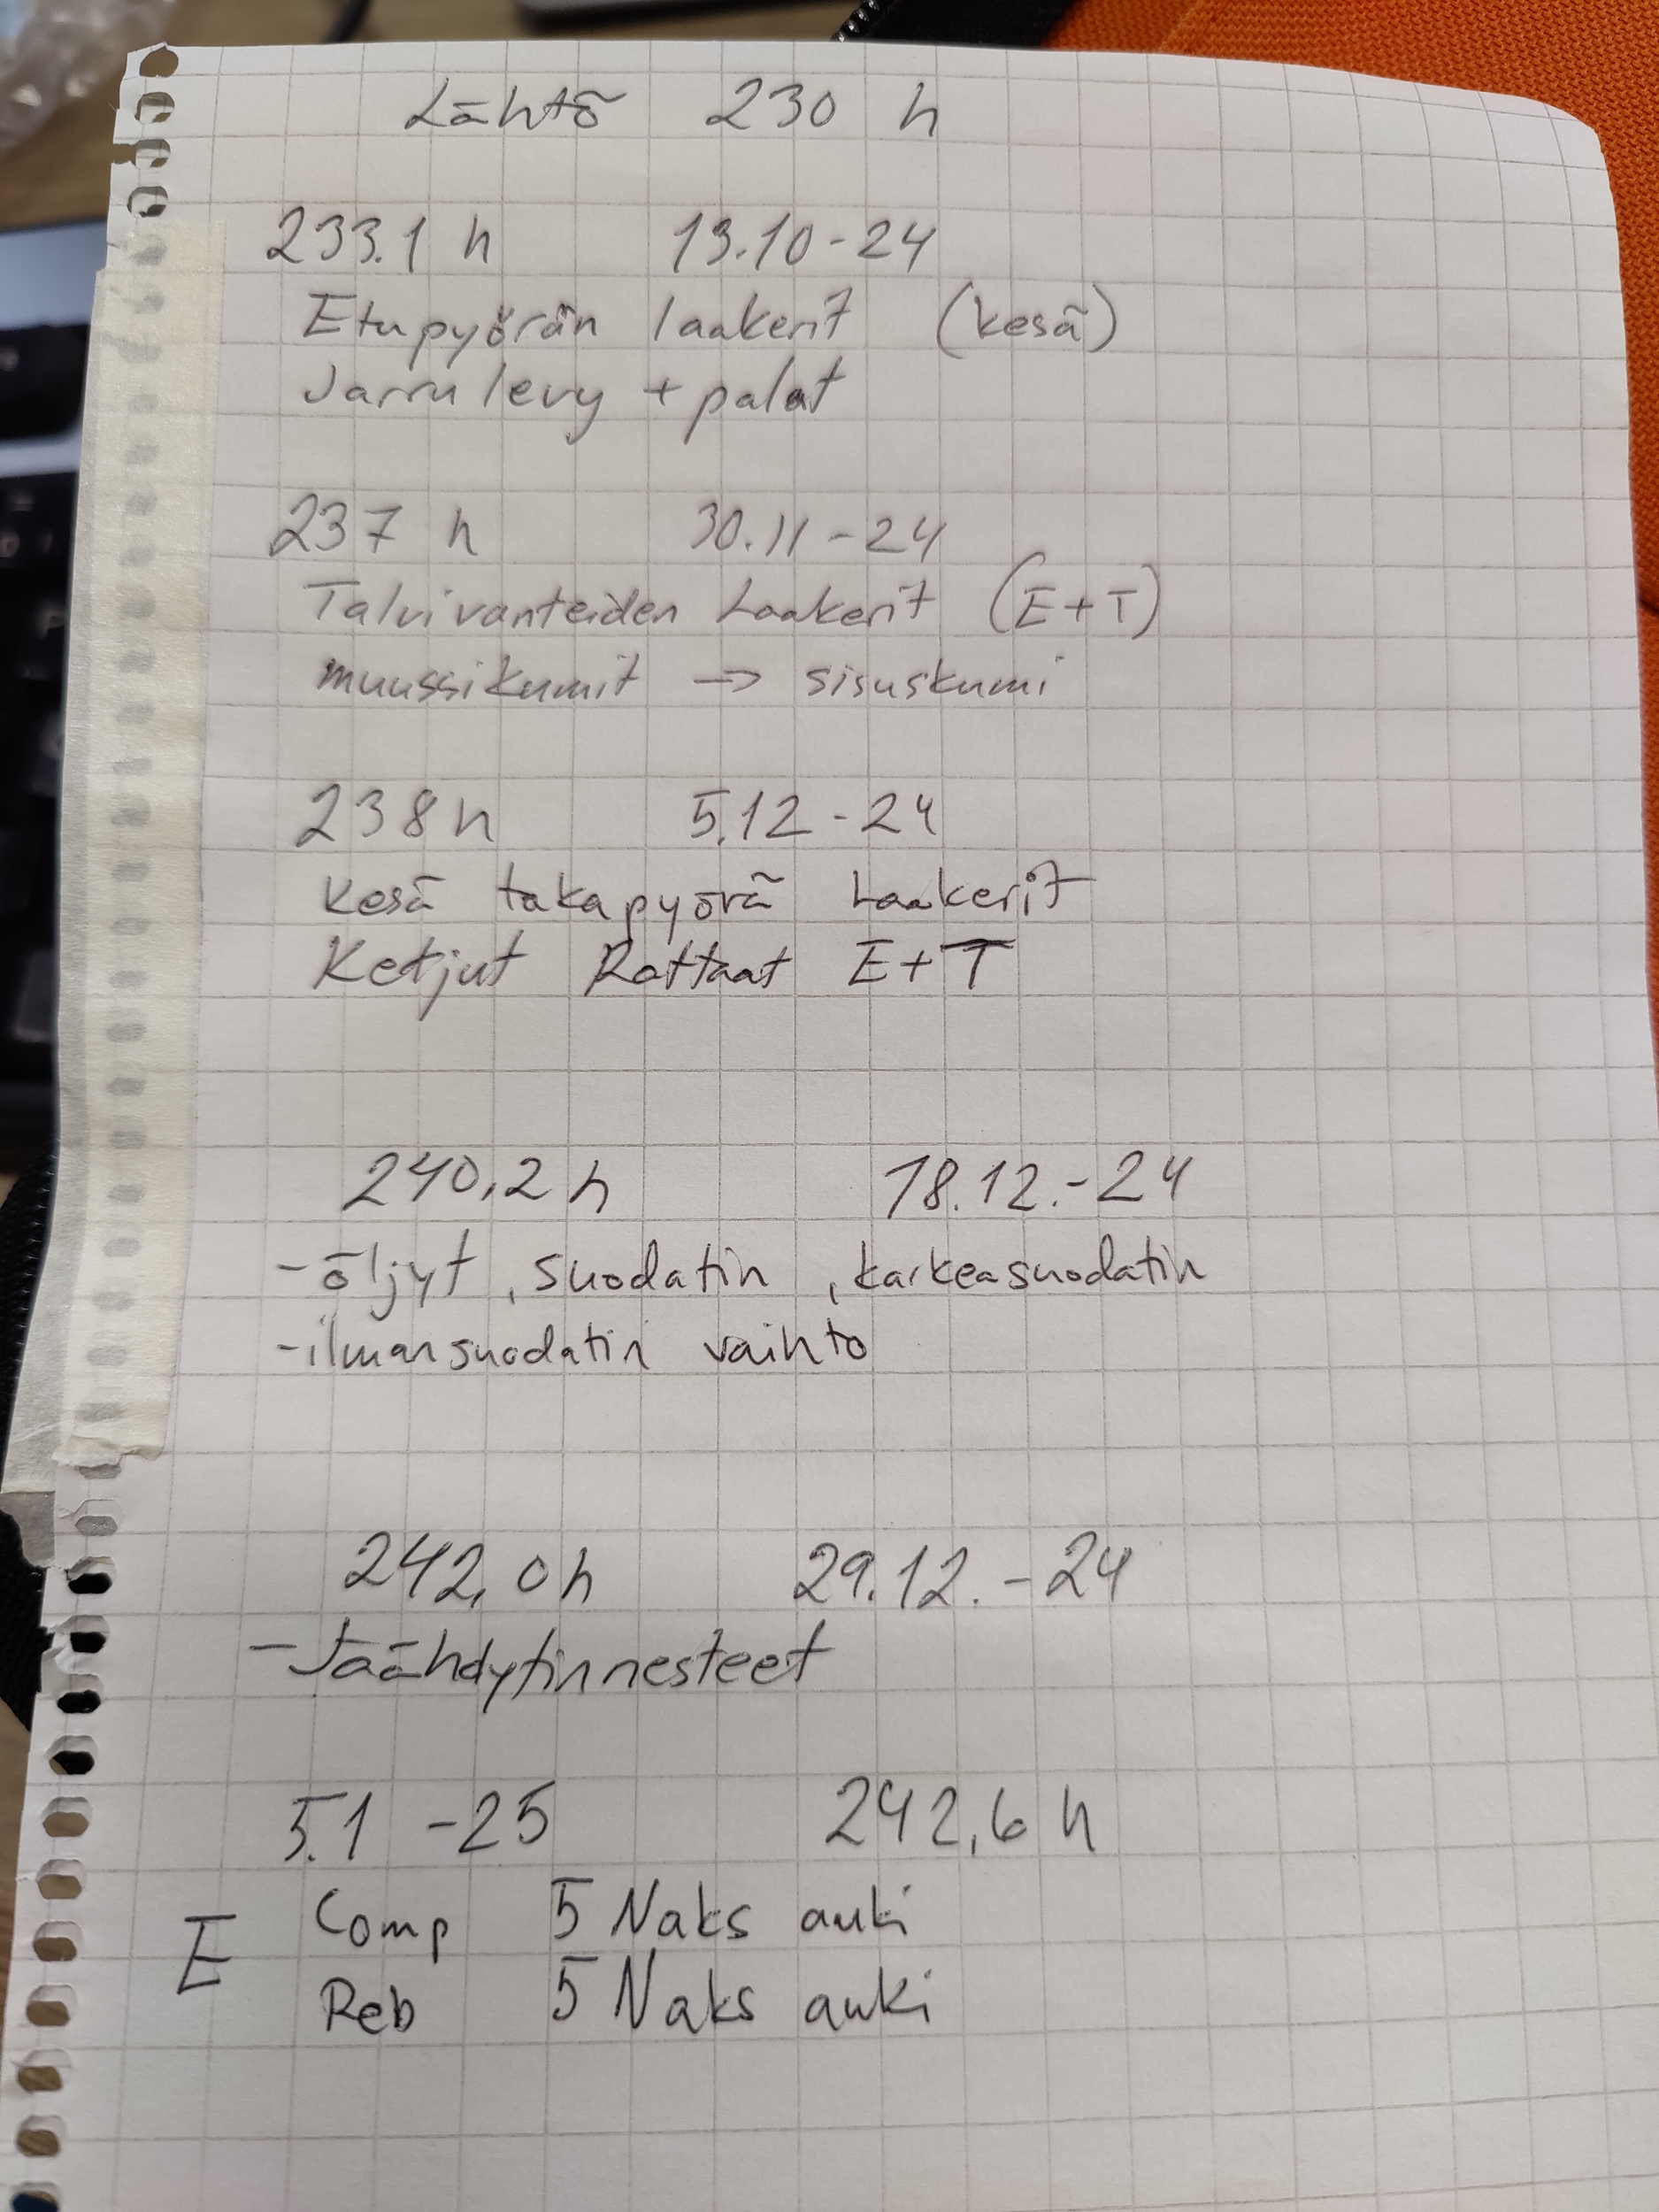 Lähtö 230 h
233.1 h 13.10-24
Etupyörän laakerit (kesä)
Jarrulevy + palat
237 h 30.11-24
Talvivanteiden Laakerit (E+T)
muussikumit → sisuskumi
238h 5.12-24
Kesä takapyörä Laakerit
Ketjut Rattaat E+T
240,2 h 18.12.-24
-öljyt, suodatin, karkeasuodatin
-ilmansuodatin vaihto
242,0h 29.12.-24
-Jäähdytinnesteet
5.1 -25 242,6 h
E Comp 5 Naks auki
Reb 5 Naks auki